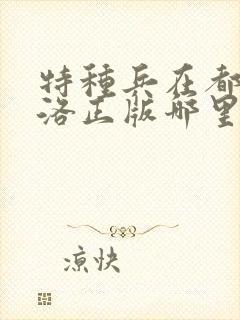 特種兵在都
洛正版哪里
凉快